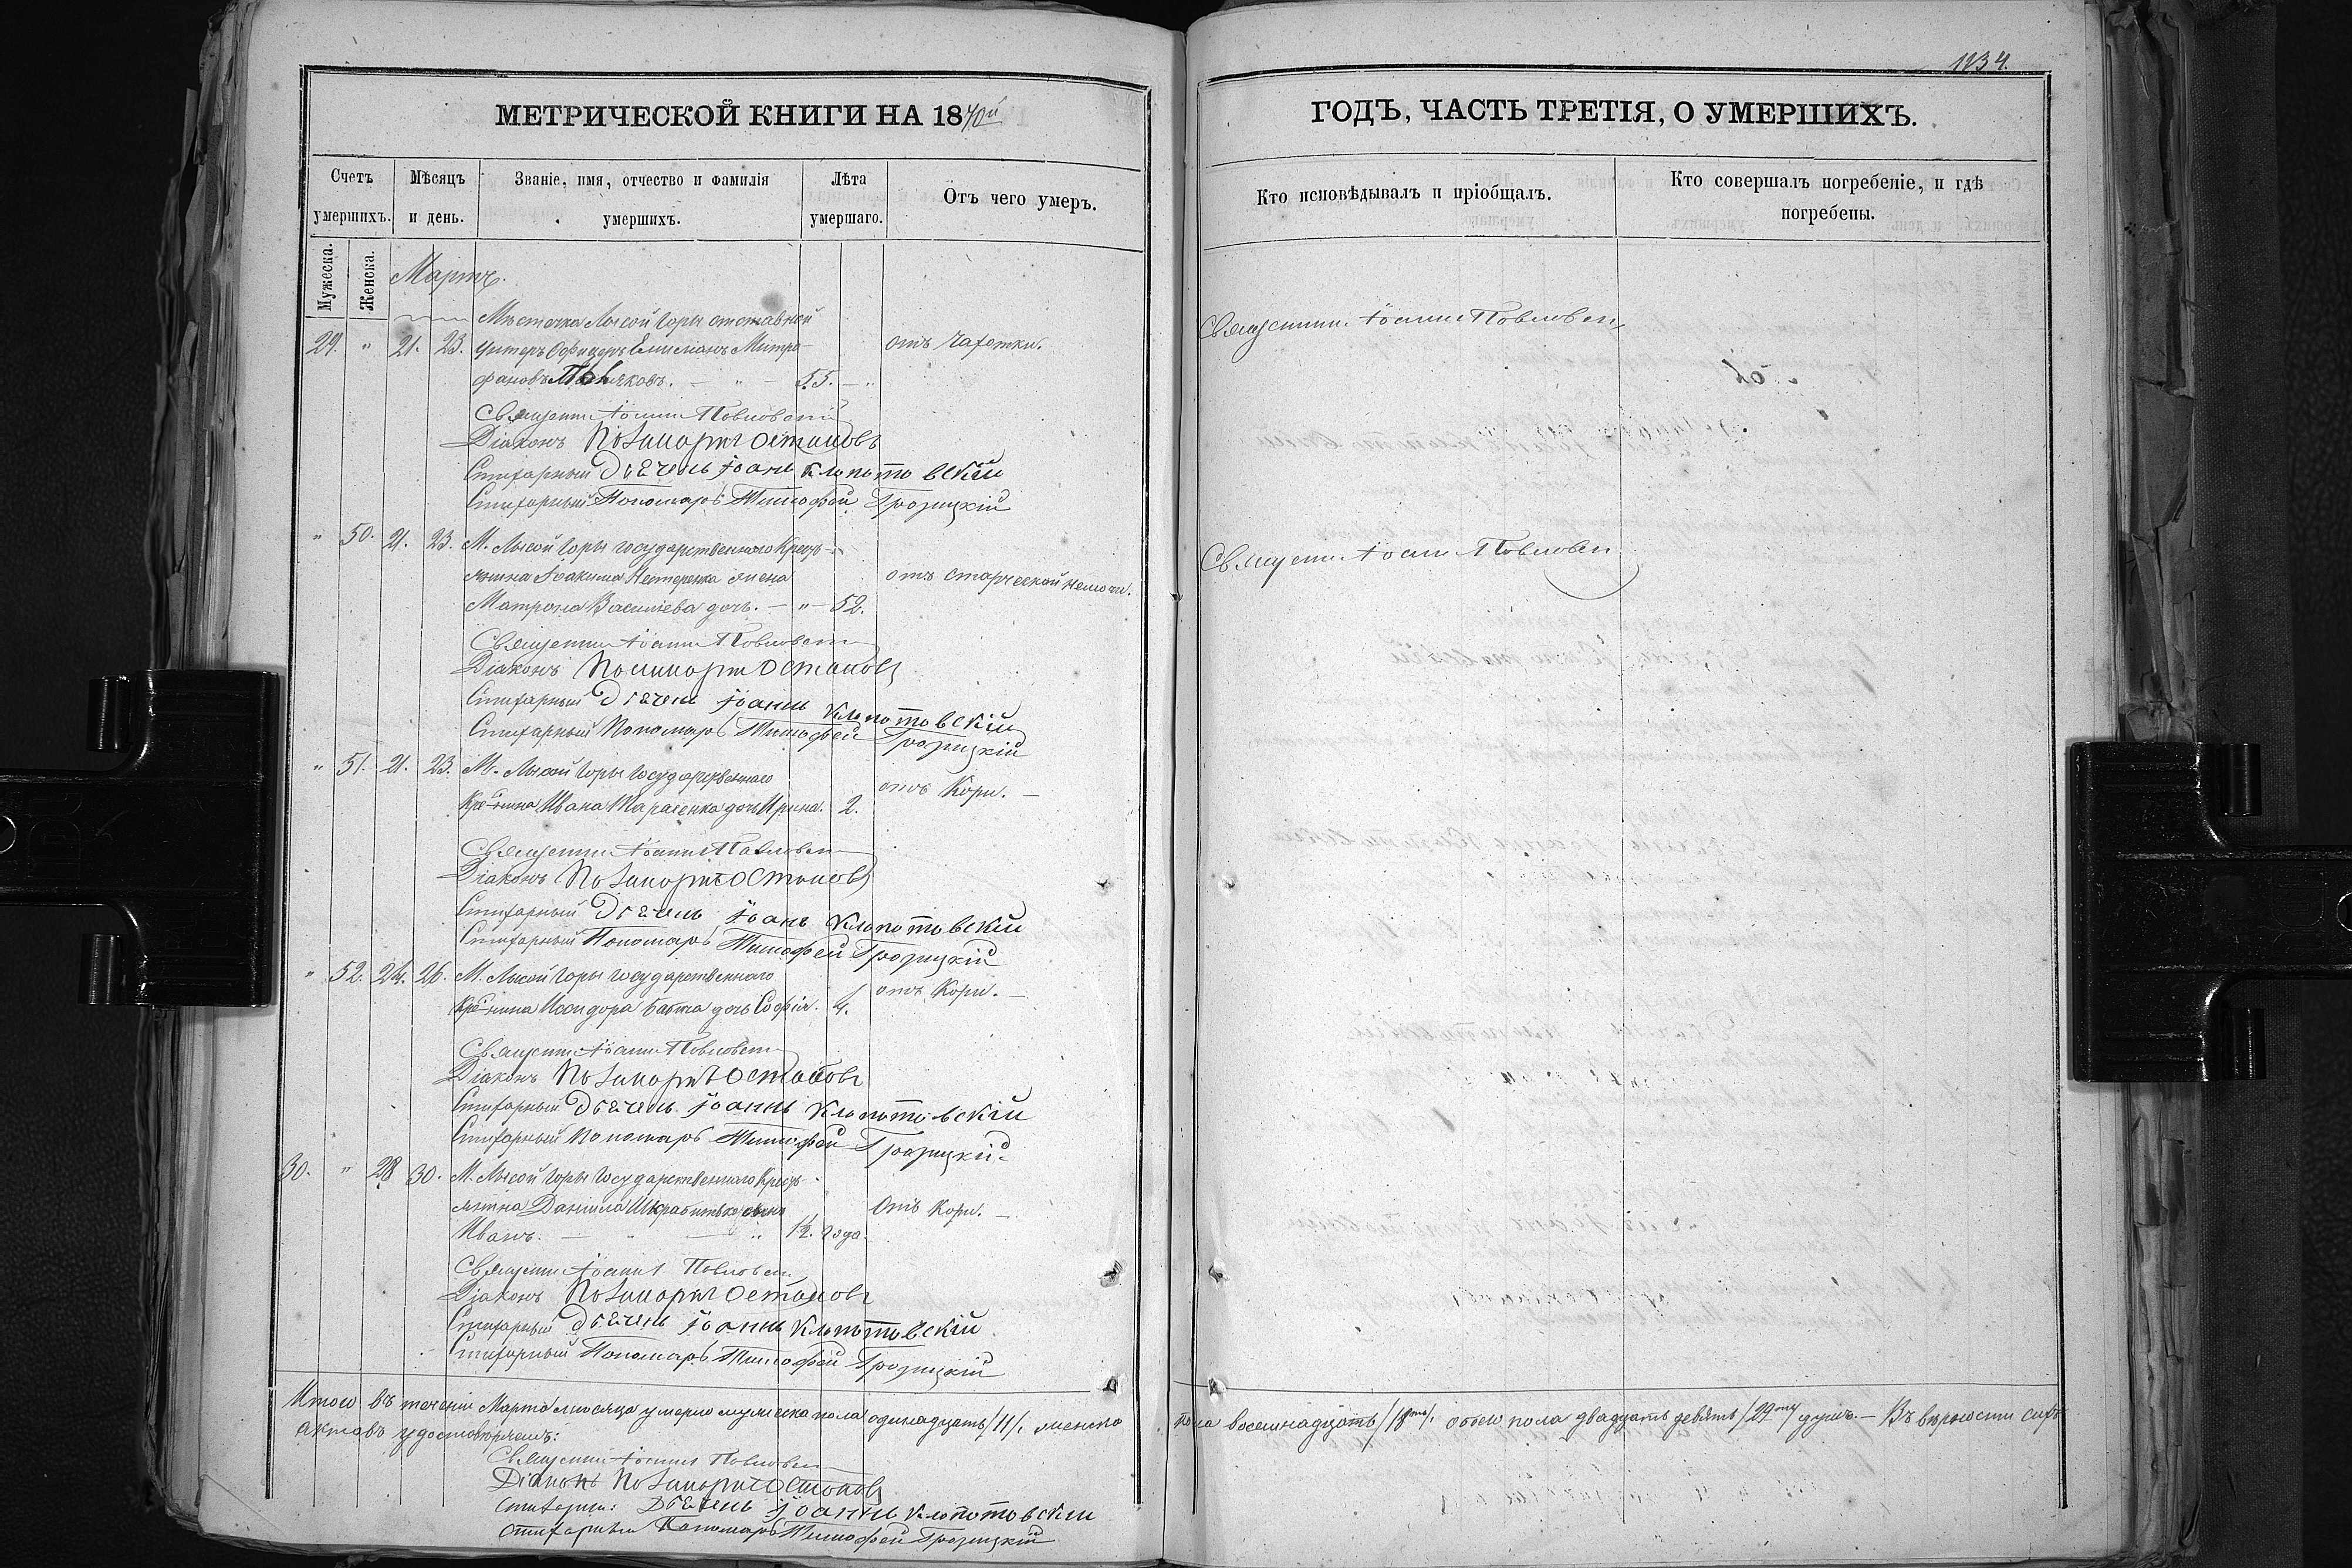 1234.
МЕТРИЧЕСКОЙ КНИГИ НА 1870й
ГОДЪ, ЧАСТЬ ТРЕТІЯ, О УМЕРШИХЪ.
Счетъ умершихъ.
Мѣсяцъ и день.
Званіе, имя, отчество и фамилія умершихъ.
Лѣта умершаго.
Отъ чего умеръ.
Кто исповѣдывалъ и пріобщалъ.
Кто совершалъ погребеніе, и гдѣ погребены.
Мужеска.
Женска.
Мартъ.
Мѣстечка Лысой Горы отставной
29. " 21. 23. Унтеръ Офицеръ Митро-
фановъ 55. отъ Чахотки.
Священни Іоаннъ Павловскій
Діаконъ Остаповъ
Стихарный Дьячекъ Іоаннъ Клопотовскій
Стихарный Пономарь Тимофей Грозицкій
Священни Іоаннъ Павловск
" 50. 21. 23. М. Лысой Горы Государственнаго Кресть-
янина Іоакима Нестеренка жена отъ старческой немочи.
Матрона Василіева дочь. — " — 52.
Священни Іоаннъ Павловск
Діаконъ Остаповъ
Стихарный Дьячекъ Іоаннъ Клопотовскій
Стихарный Пономарь Тимофей Грозицкій
Священни Іоаннъ Павловск
" 51. 21. 23. М. Лысой Горы Государственнаго
Кре-нина Ивана Тарасенка дочь Ирина. 2. отъ Кори. —
Священни Іоаннъ Павловск
Діаконъ Остаповъ
Стихарный Дьячекъ Іоаннъ Клопотовскій
Стихарный Пономарь Тимофей Грозицкій
" 52. 24. 26. М. Лысой Горы Государственнаго
Кре-нина Исидора дочь Софія. 4. отъ Кори. —
Священни Іоаннъ Павловск
Діаконъ Остаповъ
Стихарный Дьячекъ Іоаннъ Клопотовскій
Стихарный Пономарь Тимофей Грозицкій
30. " 28 30. М. Лысой Горы Государственнаго Кресть-
янина Даніила сынъ Отъ Кори. —
Иванъ. — " — " 1½. года.
Священни Іоаннъ Павловск
Діаконъ Остаповъ
Стихарный Дьячекъ Іоаннъ Клопотовскій
Стихарный Пономарь Тимофей Грозицкій
Итого въ теченіи Марта мѣсяца умерло мужеска пола одинадцать /11/, женска пола восемнадцать /18ть/. обоего пола двадцать девять /29ть/ душъ. — Въ вѣрности сихъ
актовъ удостовѣряемъ:
Священни Іоаннъ Павловск
Діаконъ Остаповъ
Стихарны: Дьячекъ Іоаннъ Клопотовскій
Стихарный Пономарь Тимофей Грозицкій